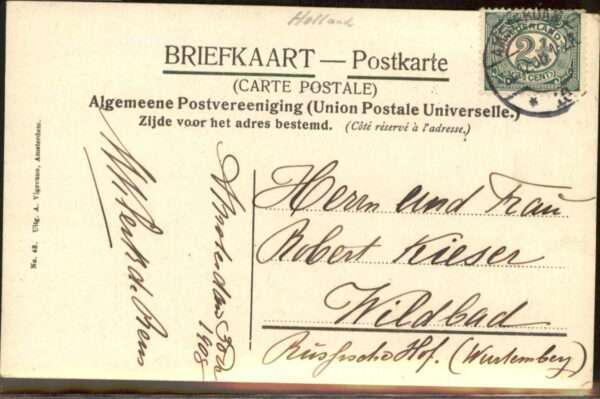 Holland
BRIEFKAART — Postkarte
(CARTE POSTALE)
Algemeene Postvereeniging (Union Postale Universelle.)
Zijde voor het adres bestemd. (Côté réservé à l'adresse.)
NEDERLAND
2½
CENT
No. 48. Uitg. A. Vigevano, Amsterdam.
Amsterdam
1908
Herrn und Frau
Robert Kieser
Wildbad
Russische Hof. (Wurtemberg)